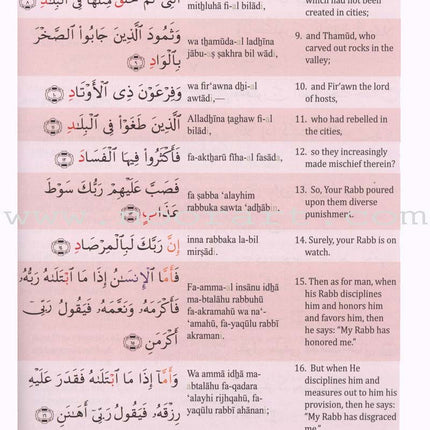 mithluhā fi-al bilādi,
created in cities;
وَثَمُودَ ٱلَّذِينَ جَابُوا۟ ٱلصَّخْرَ
بِٱلْوَادِ ۝٩
wa thamūda-al ladhīna
jābu-aṣ ṣakhra bil wādi,
9. and Thamūd, who
carved out rocks in the
valley;
وَفِرْعَوْنَ ذِى ٱلْأَوْتَادِ ۝١٠
wa fir'awna dhi-al
awtādi,—
10. and Fir'awn the lord
of hosts,
ٱلَّذِينَ طَغَوْا۟ فِى ٱلْبِلَـٰدِ ۝١١
Alladhīna ṭaghaw fi-al
bilādi,
11. who had rebelled in
the cities,
فَأَكْثَرُوا۟ فِيهَا ٱلْفَسَادَ ۝١٢
fa-aktharū fīha-al fasāda,
12. so they increasingly
made mischief therein?
فَصَبَّ عَلَيْهِمْ رَبُّكَ سَوْطَ
عَذَابٍ ۝١٣
fa ṣabba 'alayhim
rabbuka sawṭa 'adhābin.
13. So, Your Rabb poured
upon them diverse
punishment.
إِنَّ رَبَّكَ لَبِٱلْمِرْصَادِ ۝١٤
inna rabbaka la-bil
mirṣādi.
14. Surely, your Rabb is on
watch.
فَأَمَّا ٱلْإِنسَـٰنُ إِذَا مَا ٱبْتَلَىٰهُ رَبُّهُۥ
فَأَكْرَمَهُۥ وَنَعَّمَهُۥ فَيَقُولُ رَبِّىٓ
أَكْرَمَنِ ۝١٥
Fa-amma-al insānu idhā
ma-btalāhu rabbuhū
fa-akramahū wa na'-
'amahū, fa-yaqūlu rabbī
akraman;
15. Then as for man, when
his Rabb disciplines
him and honors him
and favors him, then
he says: "My Rabb has
honored me."
وَأَمَّآ إِذَا مَا ٱبْتَلَىٰهُ فَقَدَرَ عَلَيْهِ
رِزْقَهُۥ فَيَقُولُ رَبِّىٓ أَهَـٰنَنِ ۝١٦
Wa ammā idhā ma-
abtalāhu fa-qadara
'alayhi rijhqahū, fa-
yaqūlu rabbī ahānan;
16. But when He
disciplines him and
measures out to him his
provision, then he says:
"My Rabb has disgraced
me."